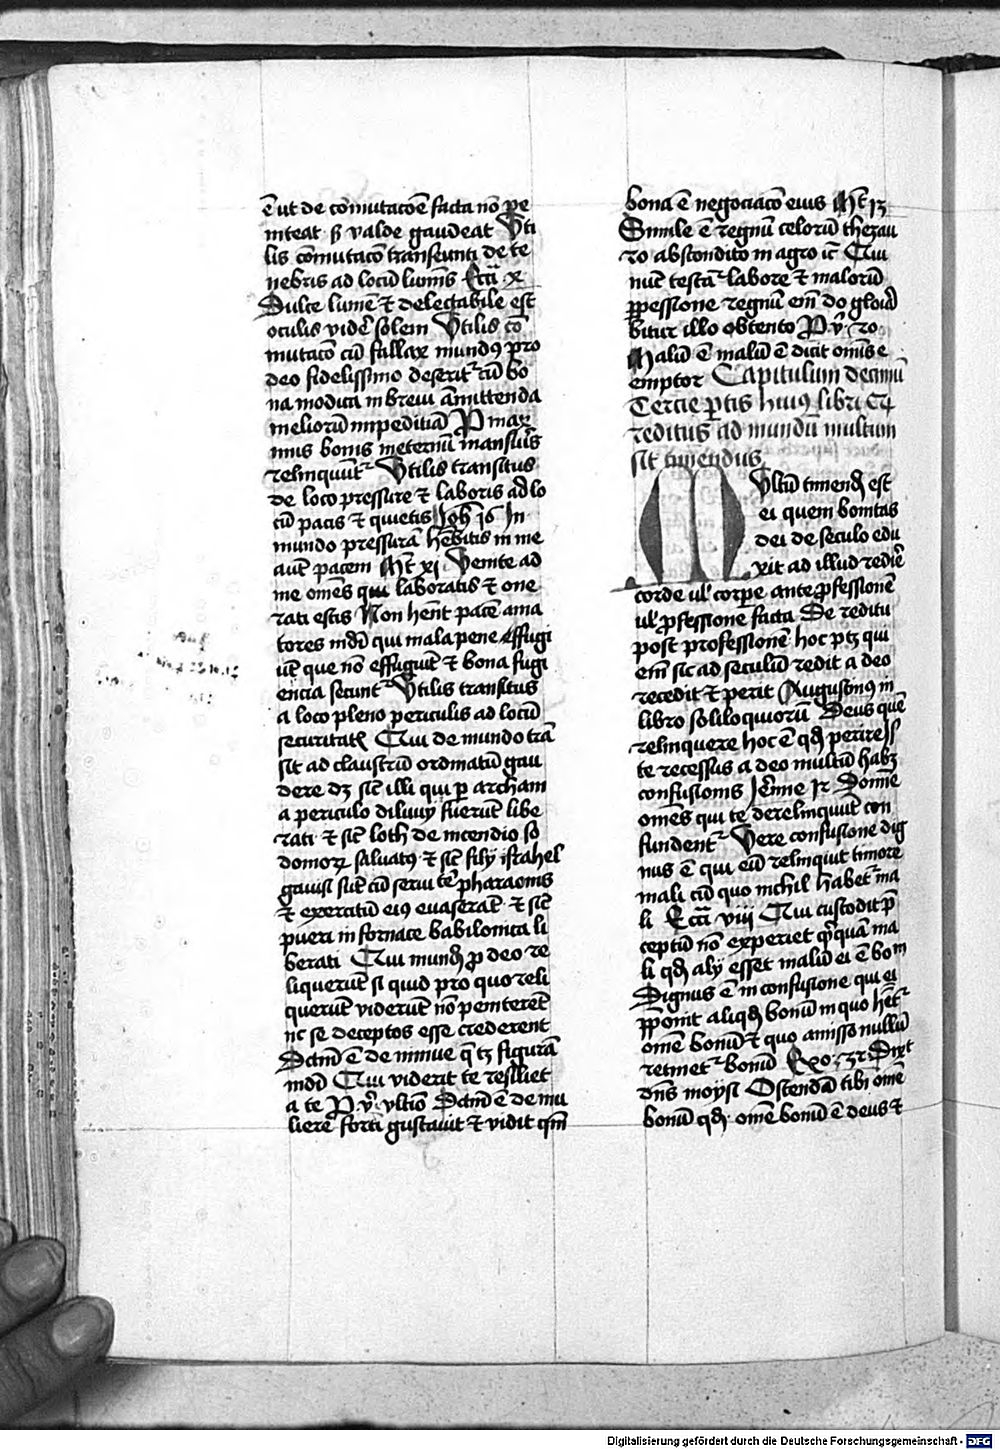 ē ut de cōmutacōe facta nō pe
niteat ß valde gaudeat Vti
lis cōmutacō transeunti de te
nebris ad locū lumīs Eccī x
Dulce lumē ⁊ delectabile est
oculis vidē solem Vtilis cō
mutacō cū fallax mundꝰ pro
deo fidelissimo deserit᷑ cū bo
na modica in breui amittenda
meliorū impeditiā P max
imis bonis ineternū mansuris
relinquūt᷑ Vtilis transitus
de loco pressure ⁊ laboris ad lo
cū pacis ⁊ quietis Joh 16 In
mundo pressurā hēbitis in me
autē pacem Mt xi Venite ad
me omēs qui laboratis ⁊ one
rati estis Non hēnt pacē ama
tores mūdi qui mala pene effugi
ūt que nō effugiūt ⁊ bona fugi
encia secūnt᷑ Vtilis transitus
a loco pleno periculis ad locū
securitatꝭ Qui de mundo trā
sit ad claustrū ordinatū gau
dere dꝫ sic̄ illi qui ꝑ archam
a periculo diluuij fuerūt libe
rati ⁊ sic̄ loth de incendio so
domoꝝ saluatꝰ ⁊ sic̄ filij israhel
gauisi sūt cū seruitē pharaonis
⁊ exercitū eiꝰ euaserāt ⁊ sic̄
pueri in fornace babilonica li
berati Qui mundū ꝓ deo re
liquerūt si quid pro quo reli
querūt viderūt nō peniterēt
nc̄ se deceptos esse crederent
Dcām ē de niniue q̄ tꝫ figurā
mūdi Qui viderit te resiliet
a te P v̊ vltīo Dcām ē de mu
liere forti gustauit ⁊ vidit qm̄
bona ē negociacō eius Mt 13
Simile ē regnū celorū thezau
ro abscondito in agro ic̄ Qui
nūc testā᷑ labore ⁊ malorū
ꝑpessione regnū em̄ do gloriā
bitur illo obtento P v̊ 20
Malū ē malū ē dicit omīs e
emptor Capitulum decimū
Tercie ꝑtis huiꝰ libri Qͥ
reditus ad mundū multum
sit timendus
Multū timendū est
ei quem bonitas
dei de seculo edu
xit ad illud redire
corde ul̓ corpe ante ꝓfessionē
ul̓ ꝓfessione facta De reditu
post professionē hoc ptꝫ qui
em̄ sic ad seculū redit a deo
recedit ⁊ perit Augustinꝰ in
libro soliloquiorū Deus quē
relinquere hoc ē qđ perire Jſ
te recessus a deo multū habꝫ
confusionis Jerīne 17 Domīe
omēs qui te derelinquūt con
fundent᷑ Vere confusione dig
nus ē qui eū relinquit timore
mali cū quo nichil habet᷑ ma
li Eccī viii Qui custodit p̄
ceptū nō experiet᷑ qͥquā ma
li qđ alij esset malū ei ē bonū
Dignus ē in confusione qui ei
p̄ponit aliqđ bonū in quo hēt᷑
omē bonū ⁊ quo amisso nullū
retinet᷑ bonū Exo 33 Dixit
dn̄s moysi Ostendā tibi omē
bonū qđ omē bonū ē deus ⁊
Digitalisierung gefördert durch die Deutsche Forschungsgemeinschaft - DFG